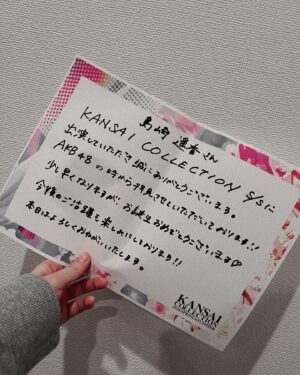 島崎 遥香さん
KANSAI COLLECTION S/Sに
出演していただき誠にありがとうございます。
AKB48の時から拝見させていただいております!!
少し早くなりますが、お誕生おめでとうございます♡
今後のご活躍も楽しみにしております!!
本日はよろしくおねがいいたします。
KANSAI
COLLECTION